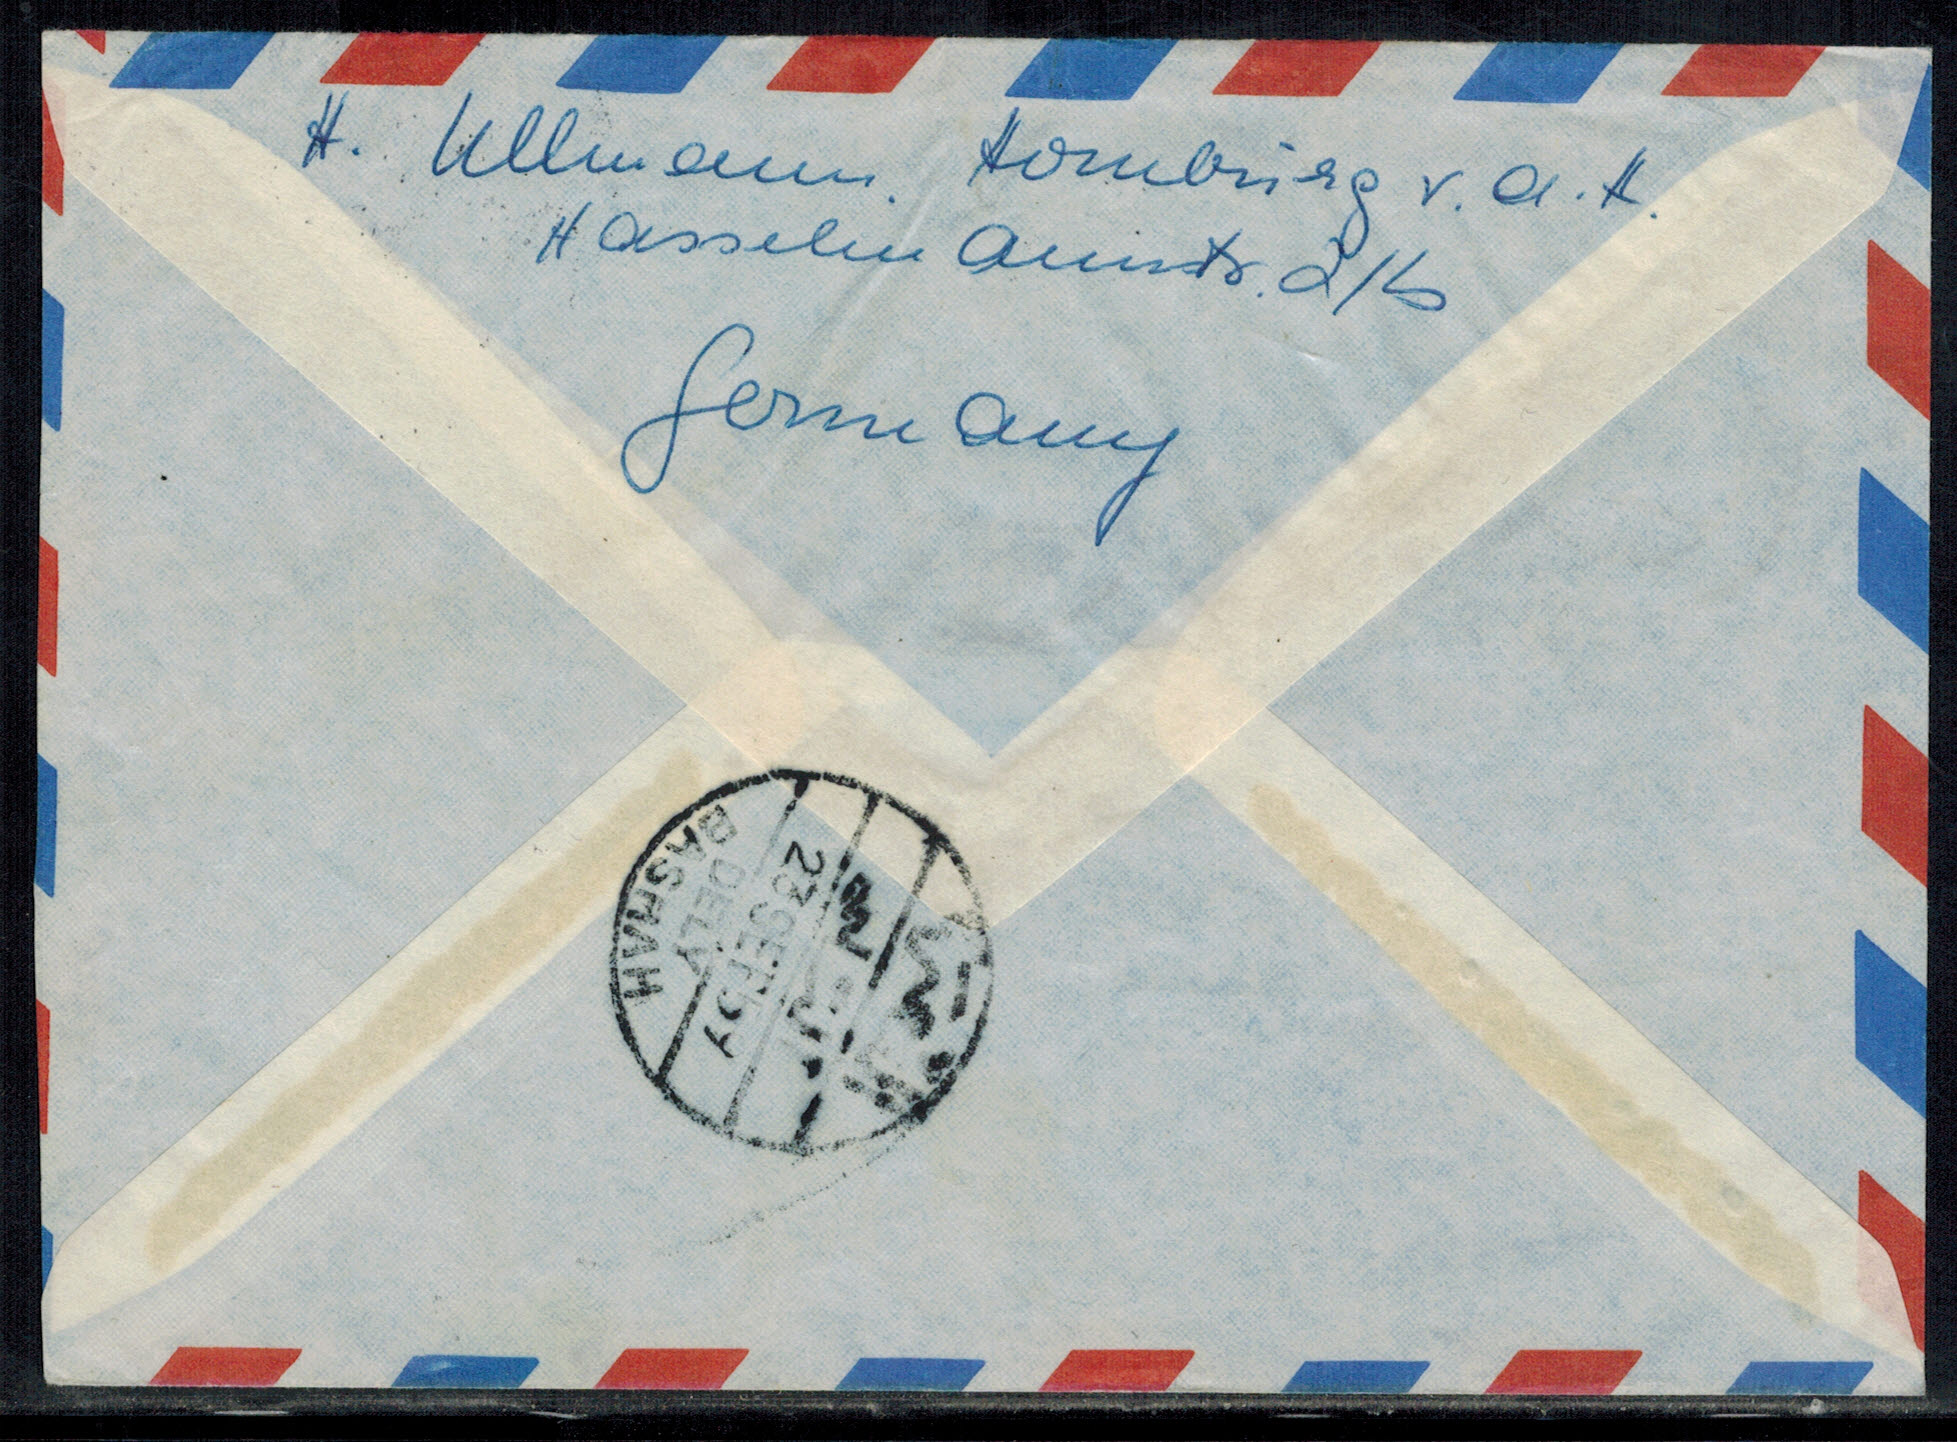 H. Ullmann. Homburg v.d.H.
Hasselmannstr. 2/b
Germany
BASRAH
DELY
23 SEP